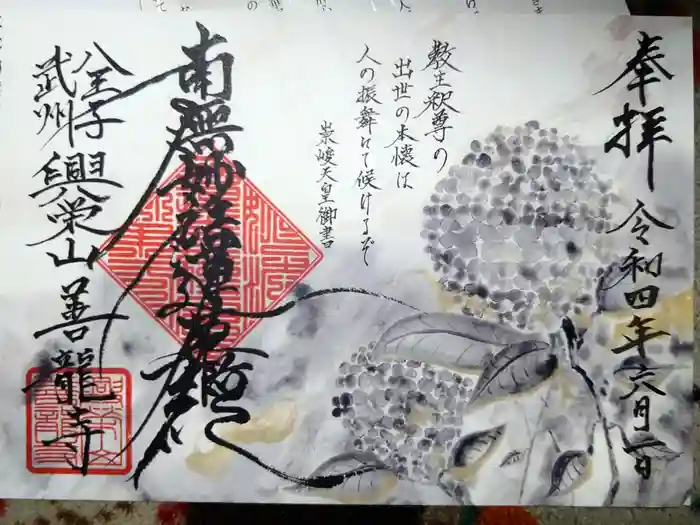 奉拝 令和四年六月一日
教主釈尊の
出世の本懐は
人の振舞にて候けるぞ
崇峻天皇御書
南無妙法蓮華経
八王子
武州 興栄山 善龍寺